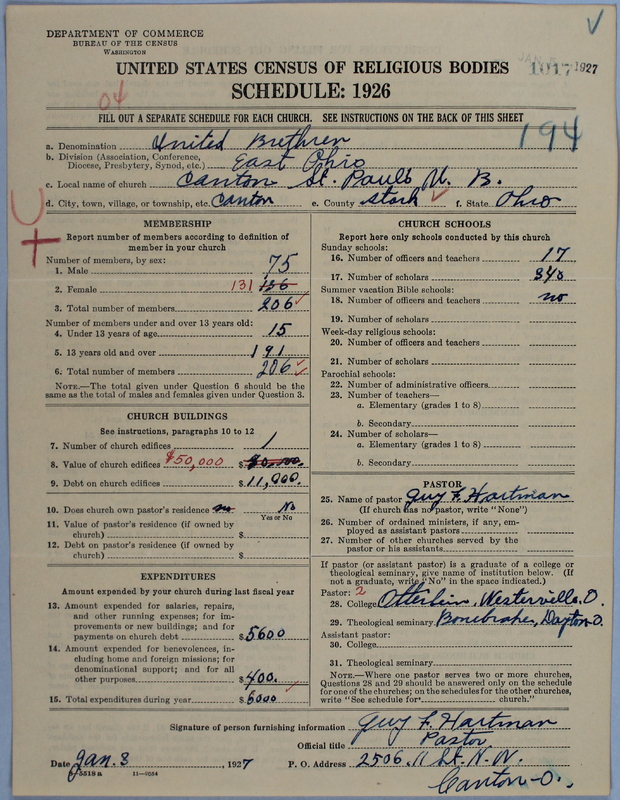 DEPARTMENT OF COMMERCE
BUREAU OF THE CENSUS
WASHINGTON
1017 1927
UNITED STATES CENSUS OF RELIGIOUS BODIES
SCHEDULE: 1926
04
FILL OUT A SEPARATE SCHEDULE FOR EACH CHURCH. SEE INSTRUCTIONS ON THE BACK OF THIS SHEET
194
a. Denomination United Brethren
b. Division (Association, Conference, Diocese, Presbytery, Synod, etc.) East Ohio
c. Local name of church Canton St. Pauls U. B.
d. City, town, village, or township, etc. Canton e. County Stark f. State Ohio
MEMBERSHIP
Report number of members according to definition of
member in your church
Number of members, by sex:
1. Male 75
2. Female 131 136
3. Total number of members 206
Number of members under and over 13 years old:
4. Under 13 years of age 15
5. 13 years old and over 191
6. Total number of members 206
NOTE.—The total given under Question 6 should be the
same as the total of males and females given under Question 3.
CHURCH BUILDINGS
See instructions, paragraphs 10 to 12
7. Number of church edifices 1
8. Value of church edifices $50,000 $
9. Debt on church edifices $11,000.
10. Does church own pastor's residence No
Yes or No
11. Value of pastor's residence (if owned by
church) $
12. Debt on pastor's residence (if owned by
church) $
EXPENDITURES
Amount expended by your church during last fiscal year
13. Amount expended for salaries, repairs,
and other running expenses; for im-
provements or new buildings; and for
payments on church debt $5600
14. Amount expended for benevolences, in-
cluding home and foreign missions; for
denominational support; and for all
other purposes $400.
15. Total expenditures during year $6000
CHURCH SCHOOLS
Report here only schools conducted by this church
Sunday schools:
16. Number of officers and teachers 17
17. Number of scholars 340
Summer vacation Bible schools:
18. Number of officers and teachers no
19. Number of scholars
Week-day religious schools:
20. Number of officers and teachers
21. Number of scholars
Parochial schools:
22. Number of administrative officers
23. Number of teachers—
a. Elementary (grades 1 to 8)
b. Secondary
24. Number of scholars—
a. Elementary (grades 1 to 8)
b. Secondary
PASTOR
25. Name of pastor Guy F. Hartman
(If church has no pastor, write "None")
26. Number of ordained ministers, if any, em-
ployed as assistant pastors
27. Number of other churches served by the
pastor or his assistants
If pastor (or assistant pastor) is a graduate of a college or
theological seminary, give name of institution below. (If
not a graduate, write "No" in the space indicated.)
Pastor: 2
28. College Otterbin, Westerville, O.
29. Theological seminary Bonebrake, Dayton-O.
Assistant pastor:
30. College
31. Theological seminary
NOTE.—Where one pastor serves two or more churches,
Questions 28 and 29 should be answered only on the schedule
for one of the churches; on the schedules for the other churches,
write "See schedule for church."
Signature of person furnishing information Guy F. Hartman
Official title Pastor
Date Jan. 3, 1927 P. O. Address 2506, 11 St. N. W.
8-5518 a 11-9054 Canton-O.